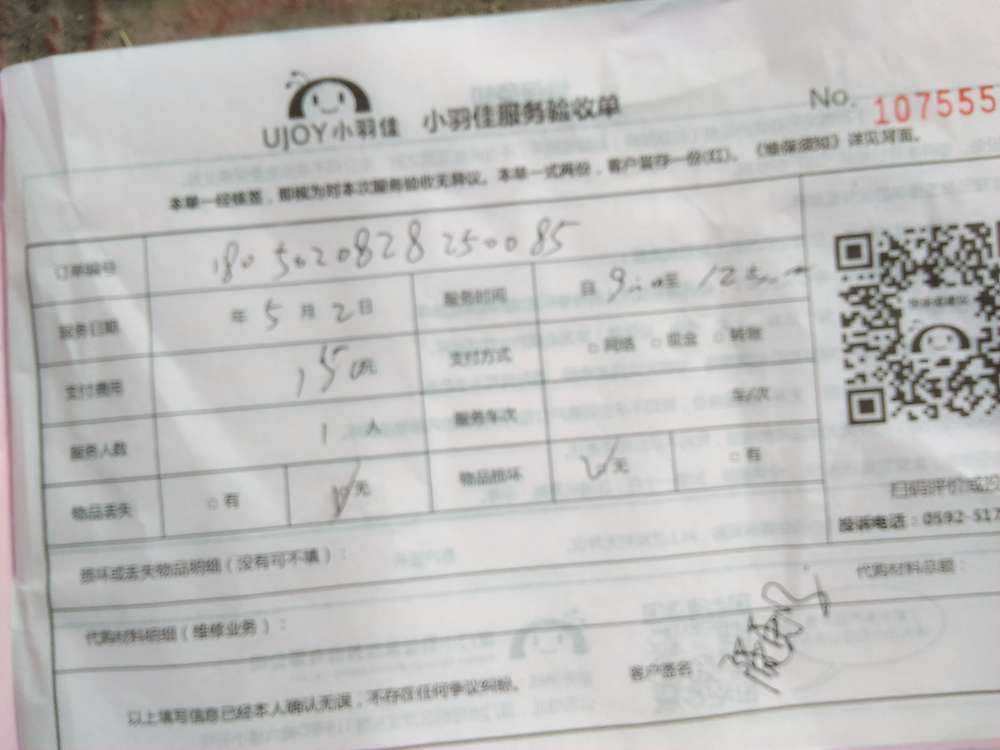 UJOY小羽佳 小羽佳服务验收单 No. 107555
本单一经核签，即视为对本次服务验收无异议。本单一式两份，客户留存一份(红)。《维保须知》详见背面。
订单编号 1805020828250085
服务日期 年 5 月 2 日 服务时间 自 9:00至 12
支付费用 150元 支付方式 □网络 □现金 □转账
服务人数 1 人 服务车次 车/次
物品丢失 □有 □无 物品损坏 □无 □有
扫码评价或投
投诉电话：0592-517
损坏或丢失物品明细（没有可不填）：
代购材料明细（维修业务）： 代购材料总额：
客户签名：
以上填写信息已经本人确认无误，不存在任何争议纠纷。